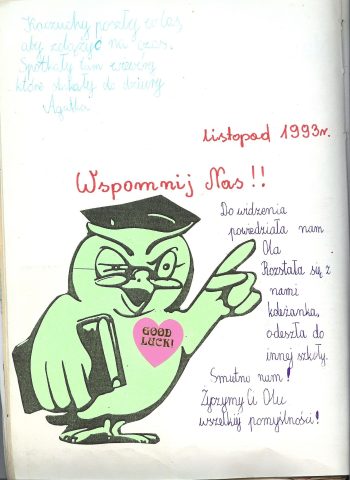 Kruzuchy poszły w las,
aby zdążyć na czas.
Spotkały tam
które do dziury
Agatka
listopad 1993r.
Wspomnij Nas!!
Do widzenia
powiedziała nam
Ola
Rozstała się z
nami
koleżanka,
odeszła do
innej szkoły.
Smutno nam!
Życzymy Ci Olu
wszelkiej pomyślności!
GOOD
LUCK!